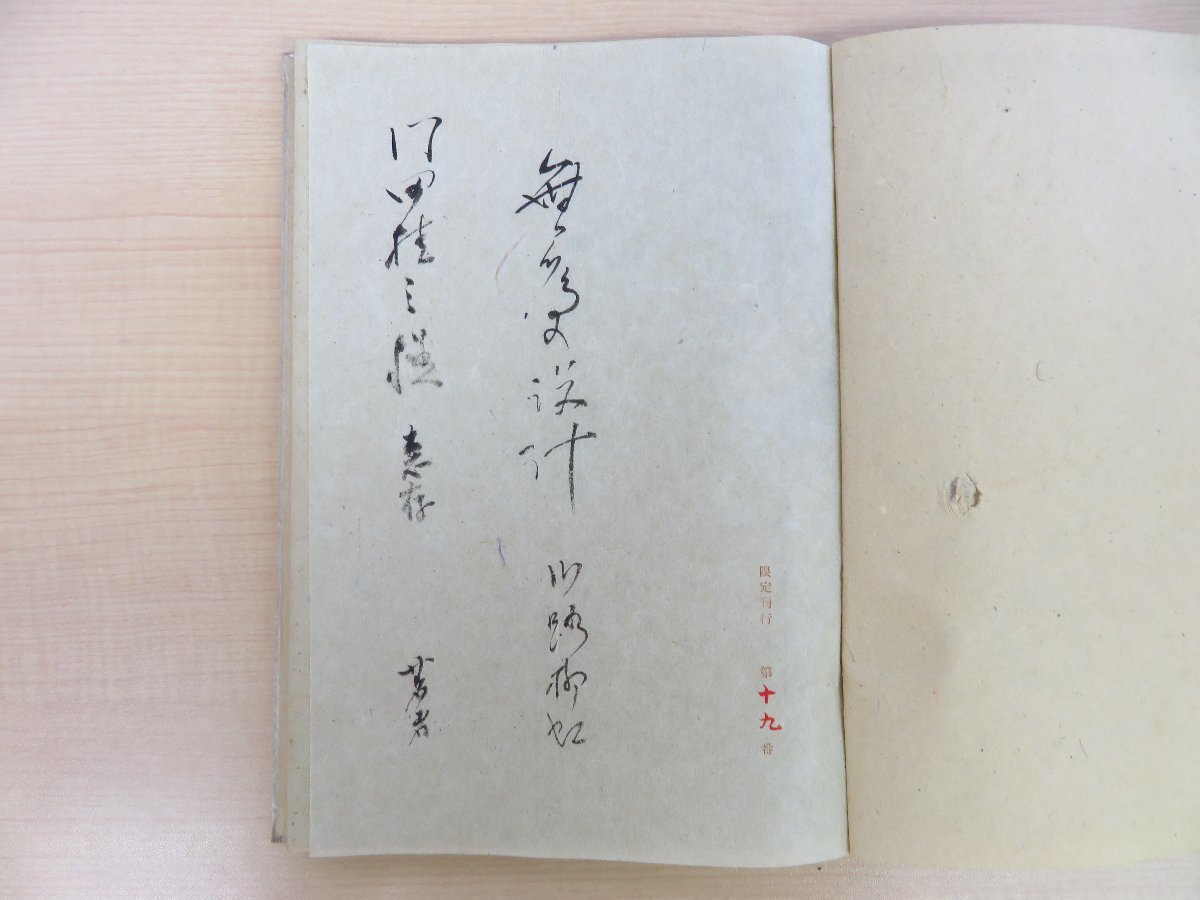 限定刊行 第十九番
無為の設計 川路柳虹
門田桂三様 恵存 著者